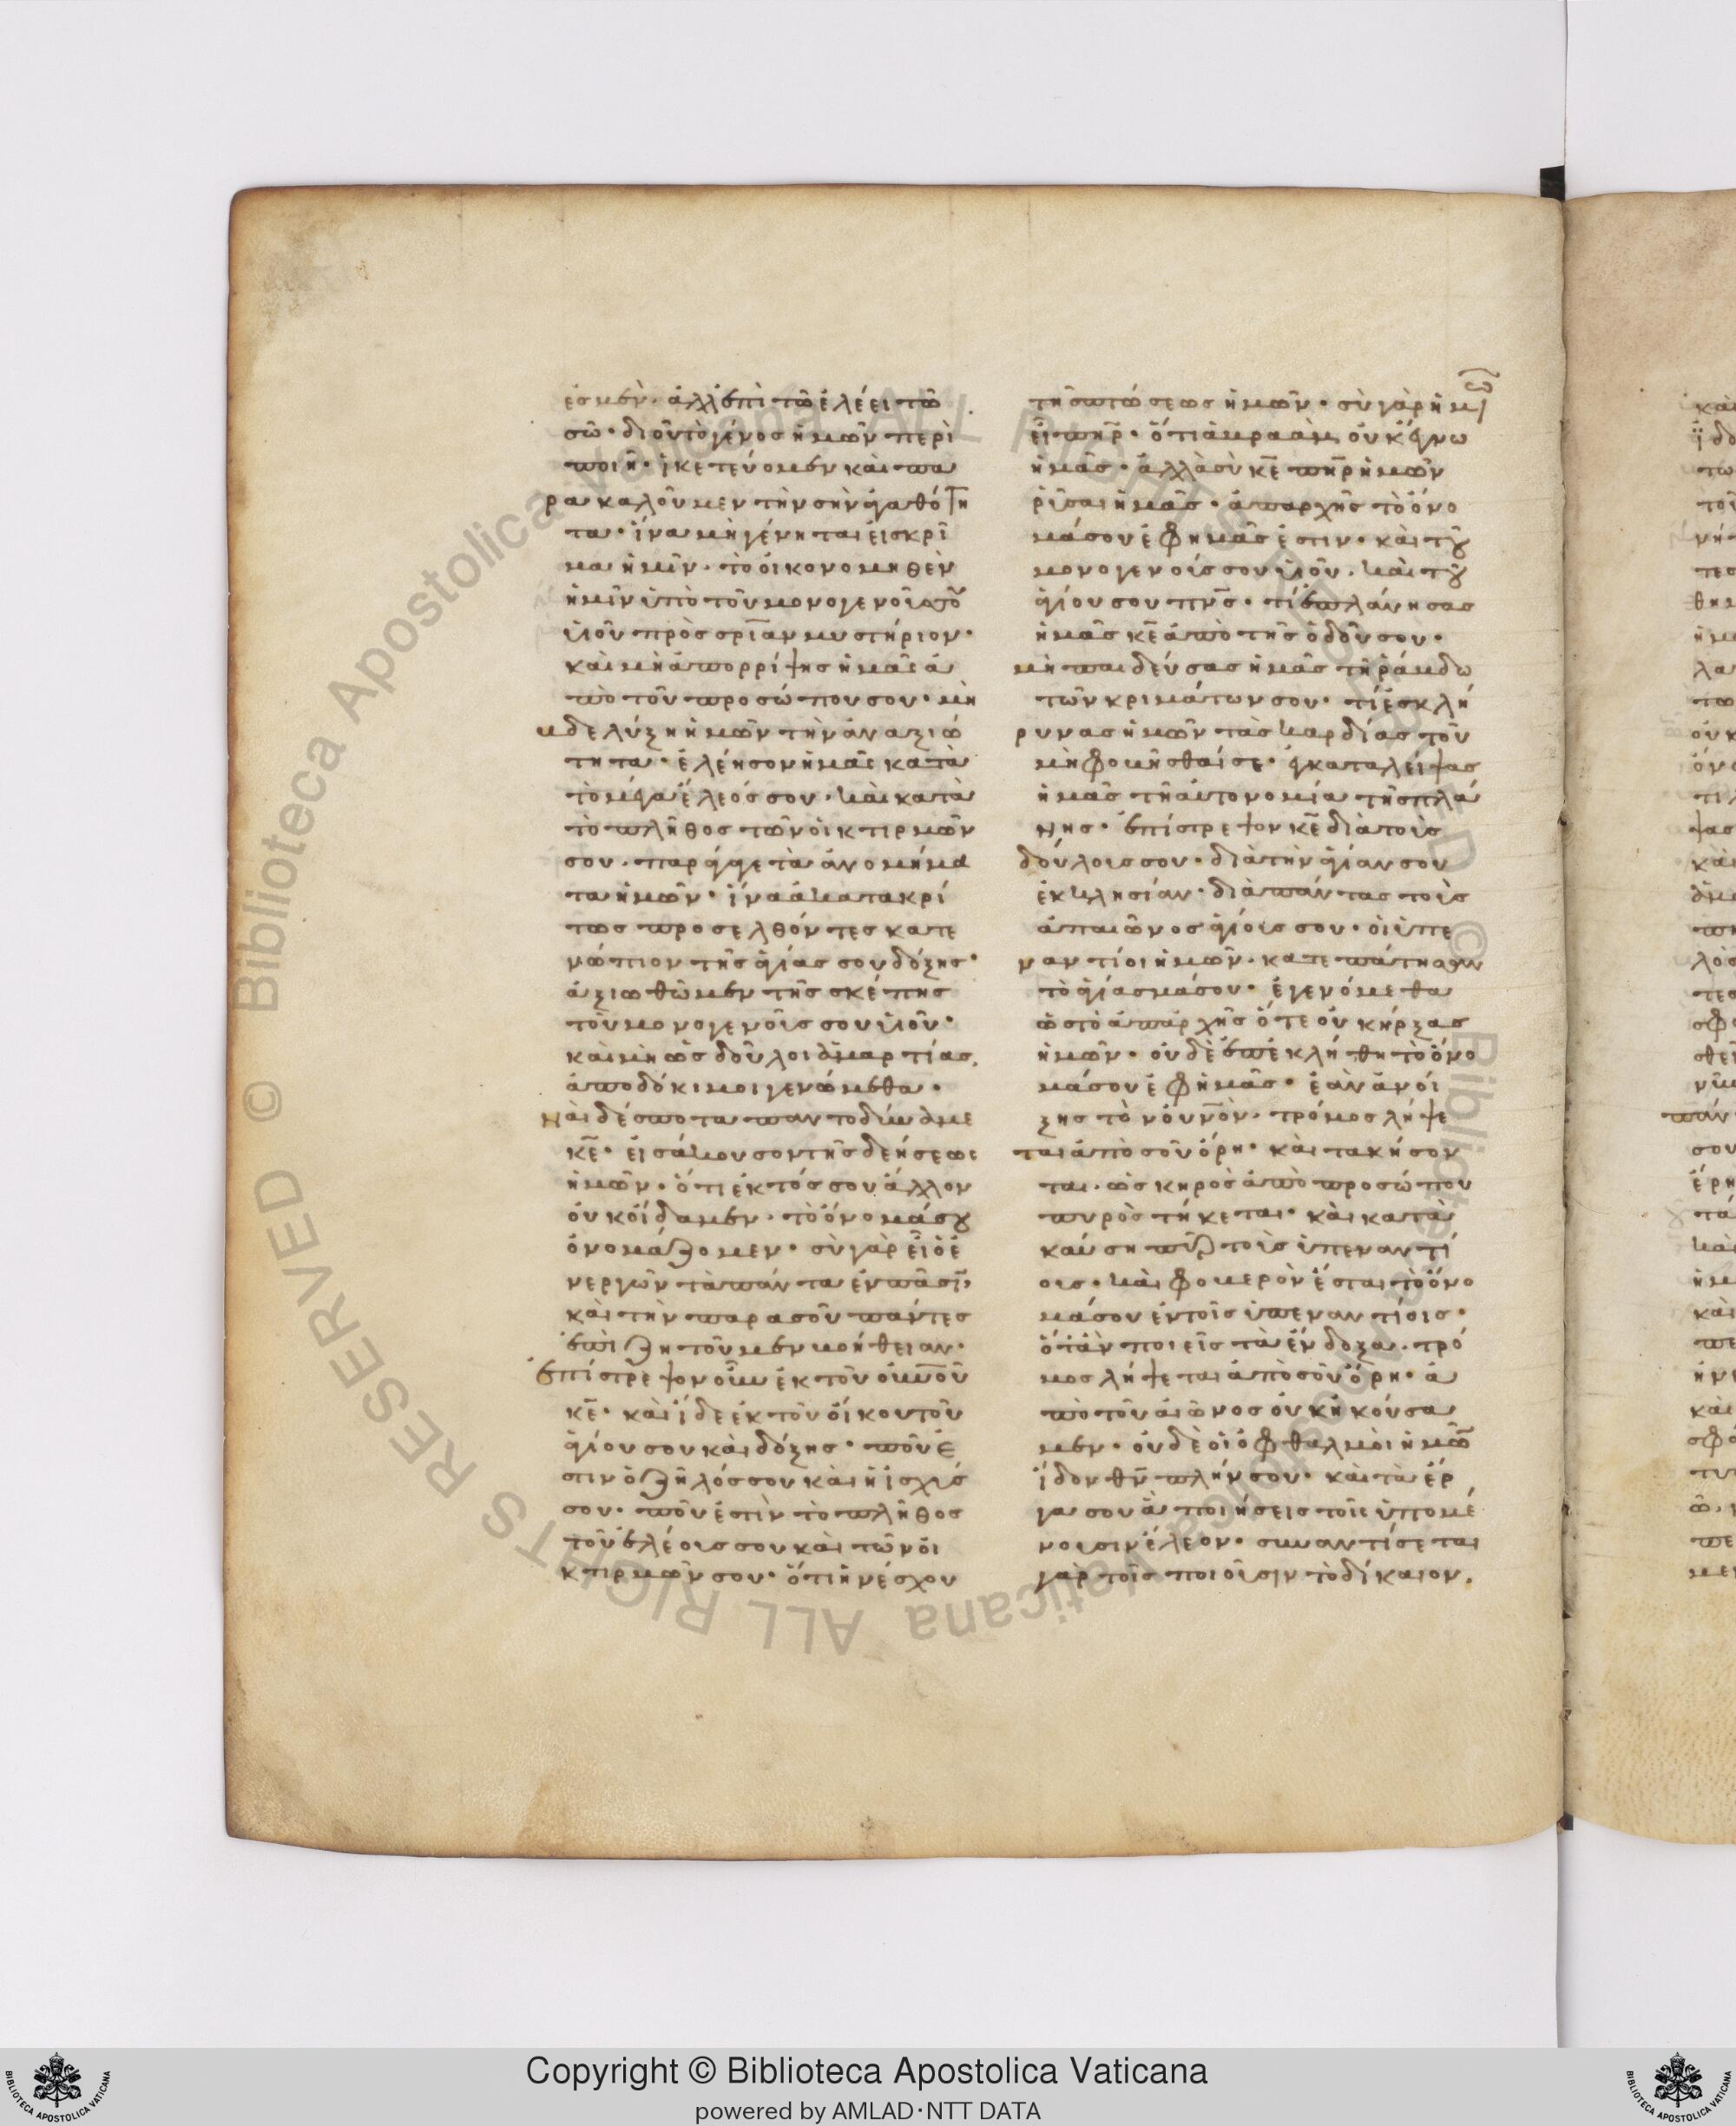 ἐσμὲν· ἀλλ' ἐπὶ τῶ ἐλέει τῶ
σῶ· δι' οὗ τὸ γένος ἡμῶν περὶ
ποιῆ· ἱκετεύομεν καὶ πα
ρακαλοῦμεν τὴν σὴν ἀγαθότη
τα· ἵνα μὴ γένηται εἰς κρῖ
μα ἡμῖν· τὸ οἰκονομηθὲν
ἡμῖν ὑπὸ τοῦ μονογενοῦς σου
υἱοῦ πρὸς σρίαν μυστήριον·
καὶ μὴ ἀπορρίψης ἡμᾶς ἀ
πὸ τοῦ προσώπου σου· μὴ
βδελύξη ἡμῶν τὴν ἀναξιό
τητα· ἐλέησον ἡμᾶς κατὰ
τὸ μέγα ἔλεός σου· καὶ κατὰ
τὸ πλῆθος τῶν οἰκτιρμῶν
σου· παράγαγε τὰ ἀνομήμα
τα ἡμῶν· ἵνα ἀκατακρί
τως προσελθόντες κατε
νώπιον τῆς ἁγίας σου δόξης·
ἀξιωθῶμεν τῆς σκέπης
τοῦ μονογενοῦς σου υἱοῦ·
καὶ μὴ ὡς δοῦλοι ἁμαρτίας
ἀποδόκιμοι γενώμεθα·
ναὶ δέσποτα παντοδύναμε
κε· εἰσάκουσον τῆς δεήσεως
ἡμῶν· ὅτι ἐκτός σου ἄλλον
οὐκ οἴδαμεν· τὸ ὄνομά σου
ὀνομάζομεν· σὺ γὰρ εἶ ὁ ἐ
νεργῶν τὰ πάντα ἐν πᾶσι,
καὶ τὴν παρὰ σοῦ πάντες
ἐπιζητοῦμεν βοήθειαν·
ἐπίστρεψον οὖν ἐκ τοῦ οὐνοῦ
κε· καὶ ἴδε ἐκ τοῦ οἴκου τοῦ
ἁγίου σου καὶ δόξης· ποῦ ἔ
στιν ὁ ζῆλός σου καὶ ἡ ἰσχύς
σου· ποῦ ἐστὶν τὸ πλῆθος
τοῦ ἐλέους σου καὶ τῶν οἰ
κτιρμῶν σου· ὅτι ἠνέσχου
τῆς πτώσεως ἡμῶν· σὺ γὰρ ἡμῶν
εἶ πηρ· ὅτι ἀβραὰμ οὐκ ἔγνω
ἡμᾶς· ἀλλὰ σὺ κε πηρ ἡμῶν
ῥῦσαι ἡμᾶς· ἀπαρχῆς τὸ ὄνο
μά σου ἐφ' ἡμᾶς ἐστιν· καὶ τοῦ
μονογενοῦς σου υἱοῦ· καὶ τοῦ
ἁγίου σου πνς· τί ἐπλάνησας
ἡμᾶς κε ἀπὸ τῆς ὁδοῦ σου·
μὴ παιδεύσας ἡμᾶς τῆ ῥάβδω
τῶν κριμάτων σου· τί ἐσκλή
ρυνας ἡμῶν τὰς καρδίας τοῦ
μὴ φοβῆσθαί σε· ἐγκαταλείψας
ἡμᾶς τῆ αὐτονομία τῆς πλά
νης· ἐπίστρεψον κε διὰ τοὺς
δούλους σου· διὰ τὴν ἁγίαν σου
ἐκκλησίαν· διὰ πάντας τοὺς
ἀπαιῶνος ἁγίους σου· οἱ ὑπε
ναντίοι ἡμῶν· κατεπάτησαν
τὸ ἁγίασμά σου· ἐγενόμεθα
ὡς τὸ ἀπάρχῆς ὅτε οὐκ ἦρξας
ἡμῶν· οὐδὲ ἐπεκλήθη τὸ ὄνο
μά σου ἐφ' ἡμᾶς· ἐὰν ἀνοί
ξης τὸν οὐνον· τρόμος λήψε
ται ἀπὸ σοῦ ὄρη· καὶ τακήσον
ται· ὡς κηρὸς ἀπὸ προσώπου
πυρὸς τήκεται· καὶ κατὰ
καύση πῦρ τοὺς ὑπεναντί
ους· καὶ φοβερὸν ἔσται τὸ ὄνο
μά σου ἐν τοῖς ὑπεναντίοις·
ὅταν ποιεῖς τὰ ἔνδοξα· τρό
μος λήψεται ἀπὸ σοῦ ὄρη· ἀ
πὸ τοῦ αἰῶνος οὐκ ἠκούσα
μεν· οὐδὲ οἱ ὀφθαλμοὶ ἡμῶν
ἴδον θν πλήν σου· καὶ τὰ ἔρ
γα σου ἃ ποιήσεις τοῖς ὑπομέ
νουσιν ἔλεον· συναντίσεται
γὰρ τοῖς ποιοῦσιν τὸ δίκαιον.
Copyright © Biblioteca Apostolica Vaticana
powered by AMLAD·NTT DATA